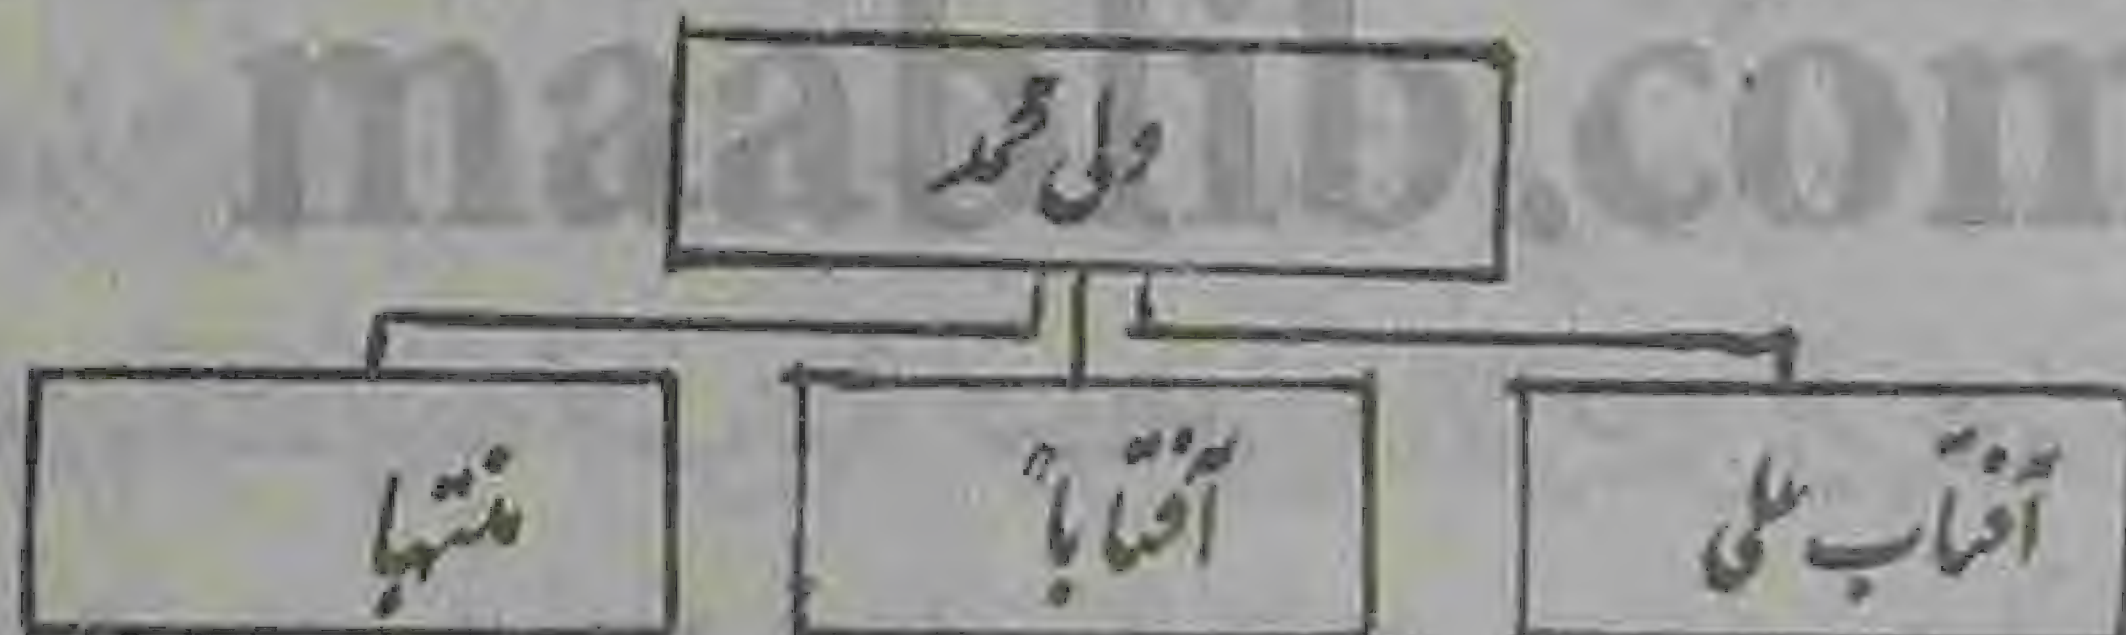 ولی محمد
آفتاب علی
آفتابا
منتہا